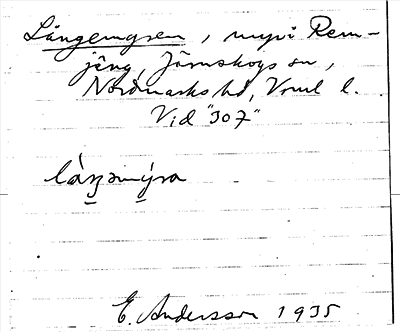 Långemyren, myr i Rem-
jäng, Järnskogs sn,
Nordmarks hd, Vrml l.
Vid "307"
làŋ̱əmý̱ra
E. Andersson 1935